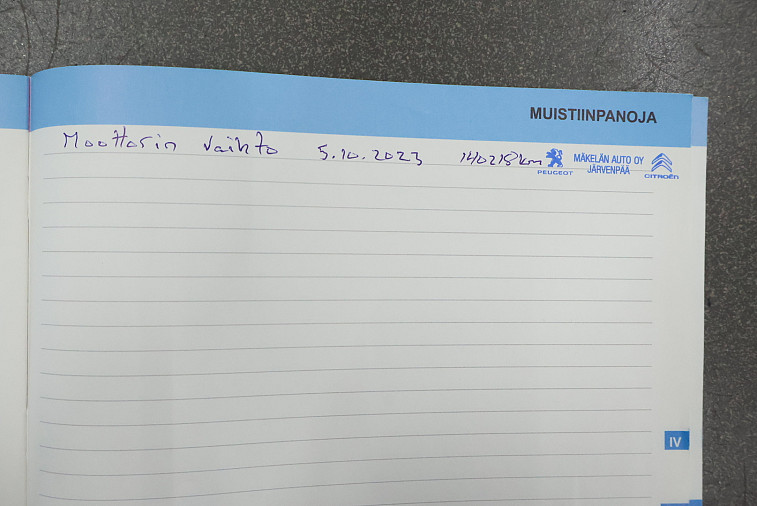 MUISTIINPANOJA
Moottorin vaihto 5.10.2023 140218km
PEUGEOT
MÄKELÄN AUTO OY
JÄRVENPÄÄ
CITROËN
IV